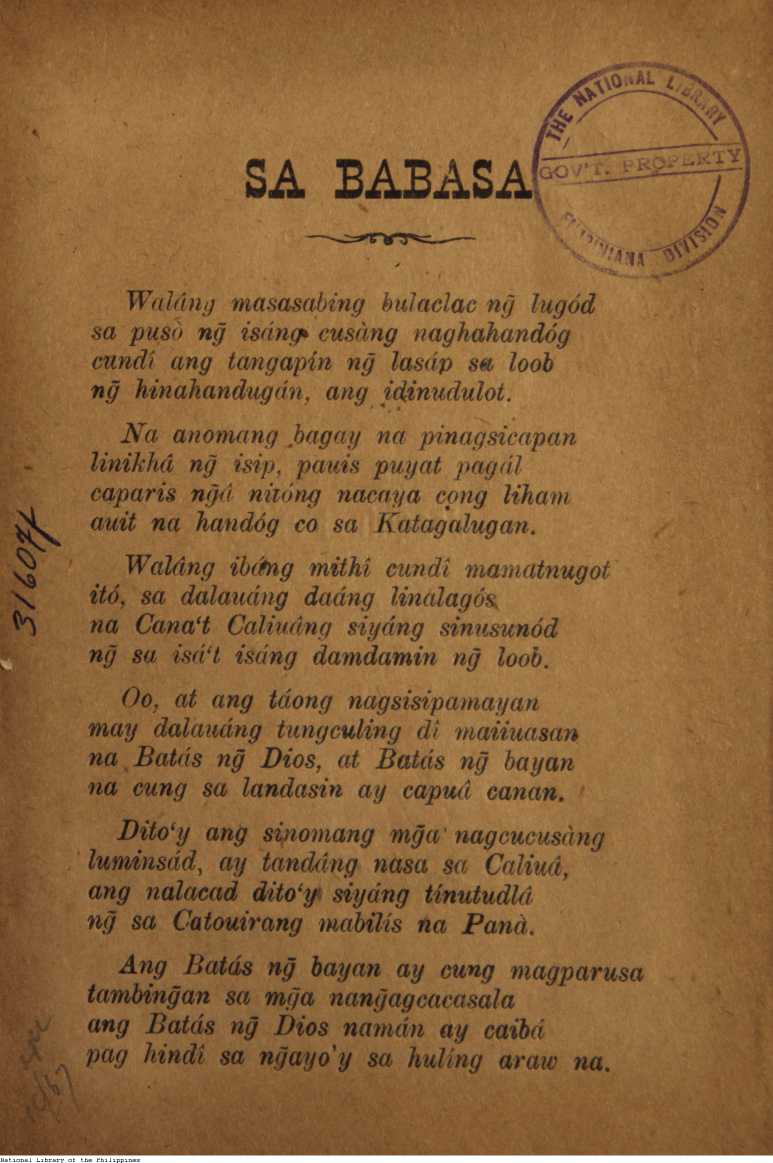 THE NATIONAL LIBRARY
GOV'T. PROPERTY
FILIPINIANA DIVISION
SA BABASA
Waláng masasabing bulaclac ng̃ lugód
sa pusò ng̃ isáng cusàng naghahandóg
cundî ang tangapín ng̃ lasáp sa loob
ng̃ hinahandugán, ang idinudulot.
Na anomang bagay na pinagsicapan
linikhâ ng̃ isip, pauis puyat pagál
caparis ng̃â nitóng nacaya cong liham
auit na handóg co sa Katagalugan.
Waláng ibáng mithî cundî mamatnugot
itó, sa dalauáng daáng linalagós
na Cana‘t Caliuáng siyáng sinusunód
ng̃ sa isá‘t isáng damdamin ng̃ loob.
Oo, at ang táong nagsisipamayan
may dalauáng tungculing dî maiiuasan
na Batás ng̃ Dios, at Batás ng̃ bayan
na cung sa landasin ay capuâ canan.
Dito‘y ang sinomang mg̃a nagcucusàng
luminsád, ay tandáng nasa sa Caliuâ,
ang nalacad dito‘y siyáng tínutudlâ
ng̃ sa Catouirang mabilís na Panà.
Ang Batás ng̃ bayan ay cung magparusa
tambing̃an sa mg̃a nang̃agcacasala
ang Batás ng̃ Dios namán ay caibá
pag hindî sa ng̃ayo'y sa hulíng araw na.
31607f
National Library of the Philippines